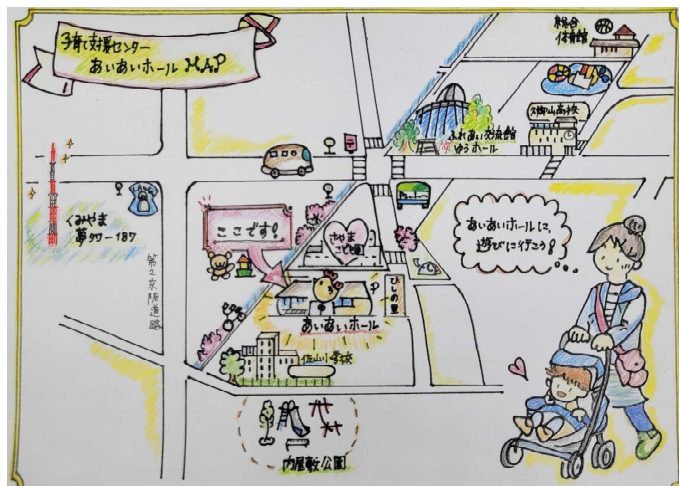 子育て支援センター
あいあいホール MAP
総合
体育館
久御山高校
ふれあい交流館
ゆうホール
くみやま
夢タワー187
第2京阪道路
ここです!
さやま
こども園
あいあいホールに、
遊びに行こう!
P
ひしの里
あいあいホール
佐山小学校
内屋敷公園